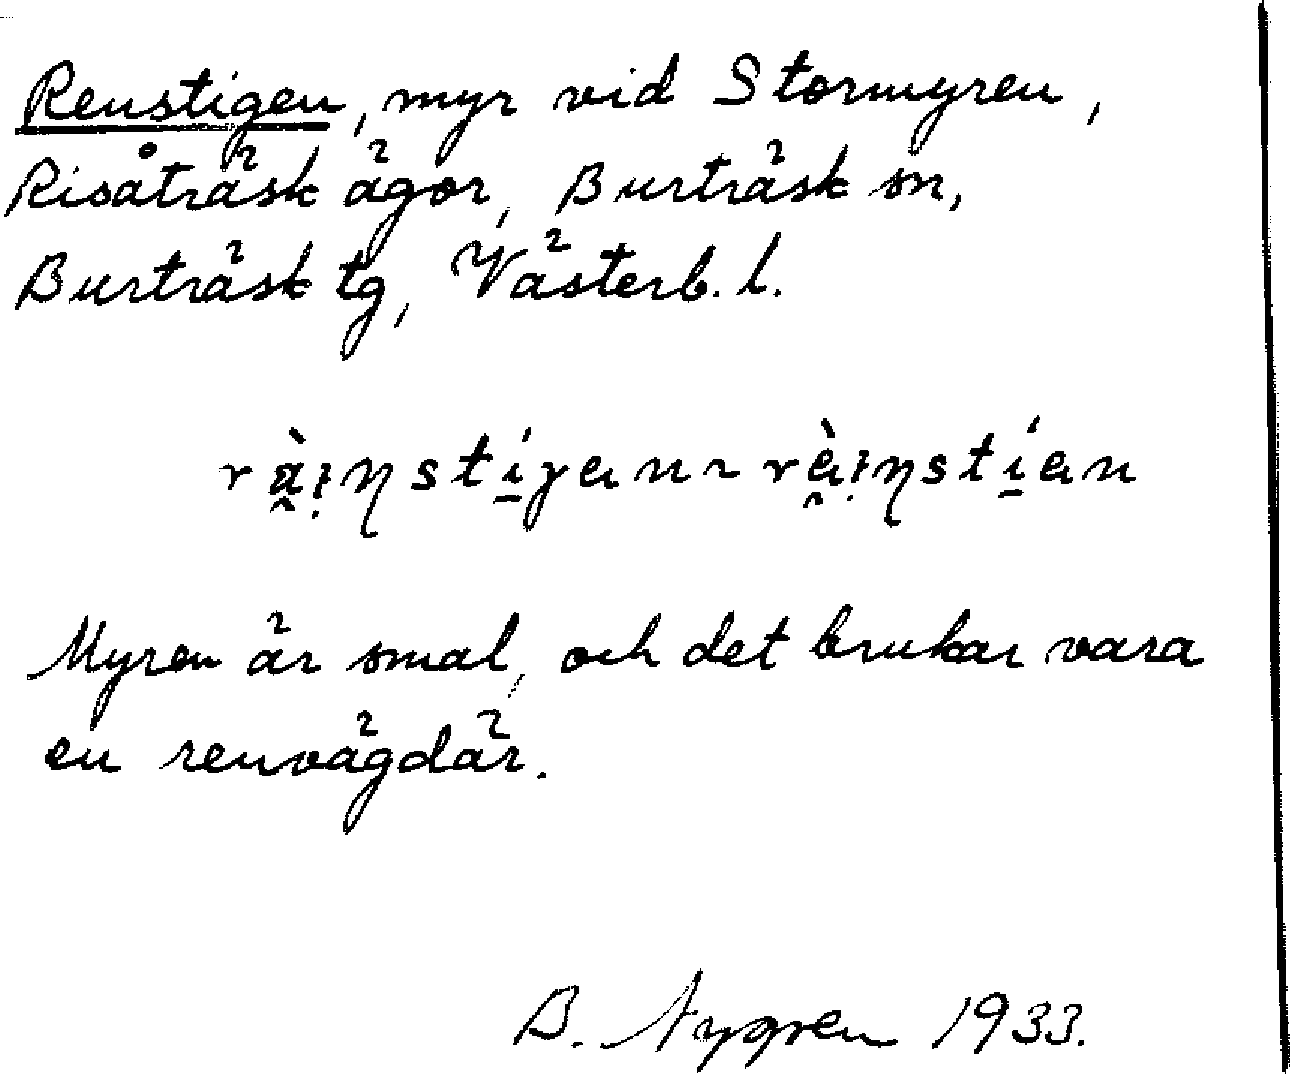 Renstigen, myr vid Stormyren,
Risåträsk ägor, Burträsk sn,
Burträsk tg, Västerb. l.
Myren är smal, och det brukar vara
en renvägdär.
B. Nygren 1933.